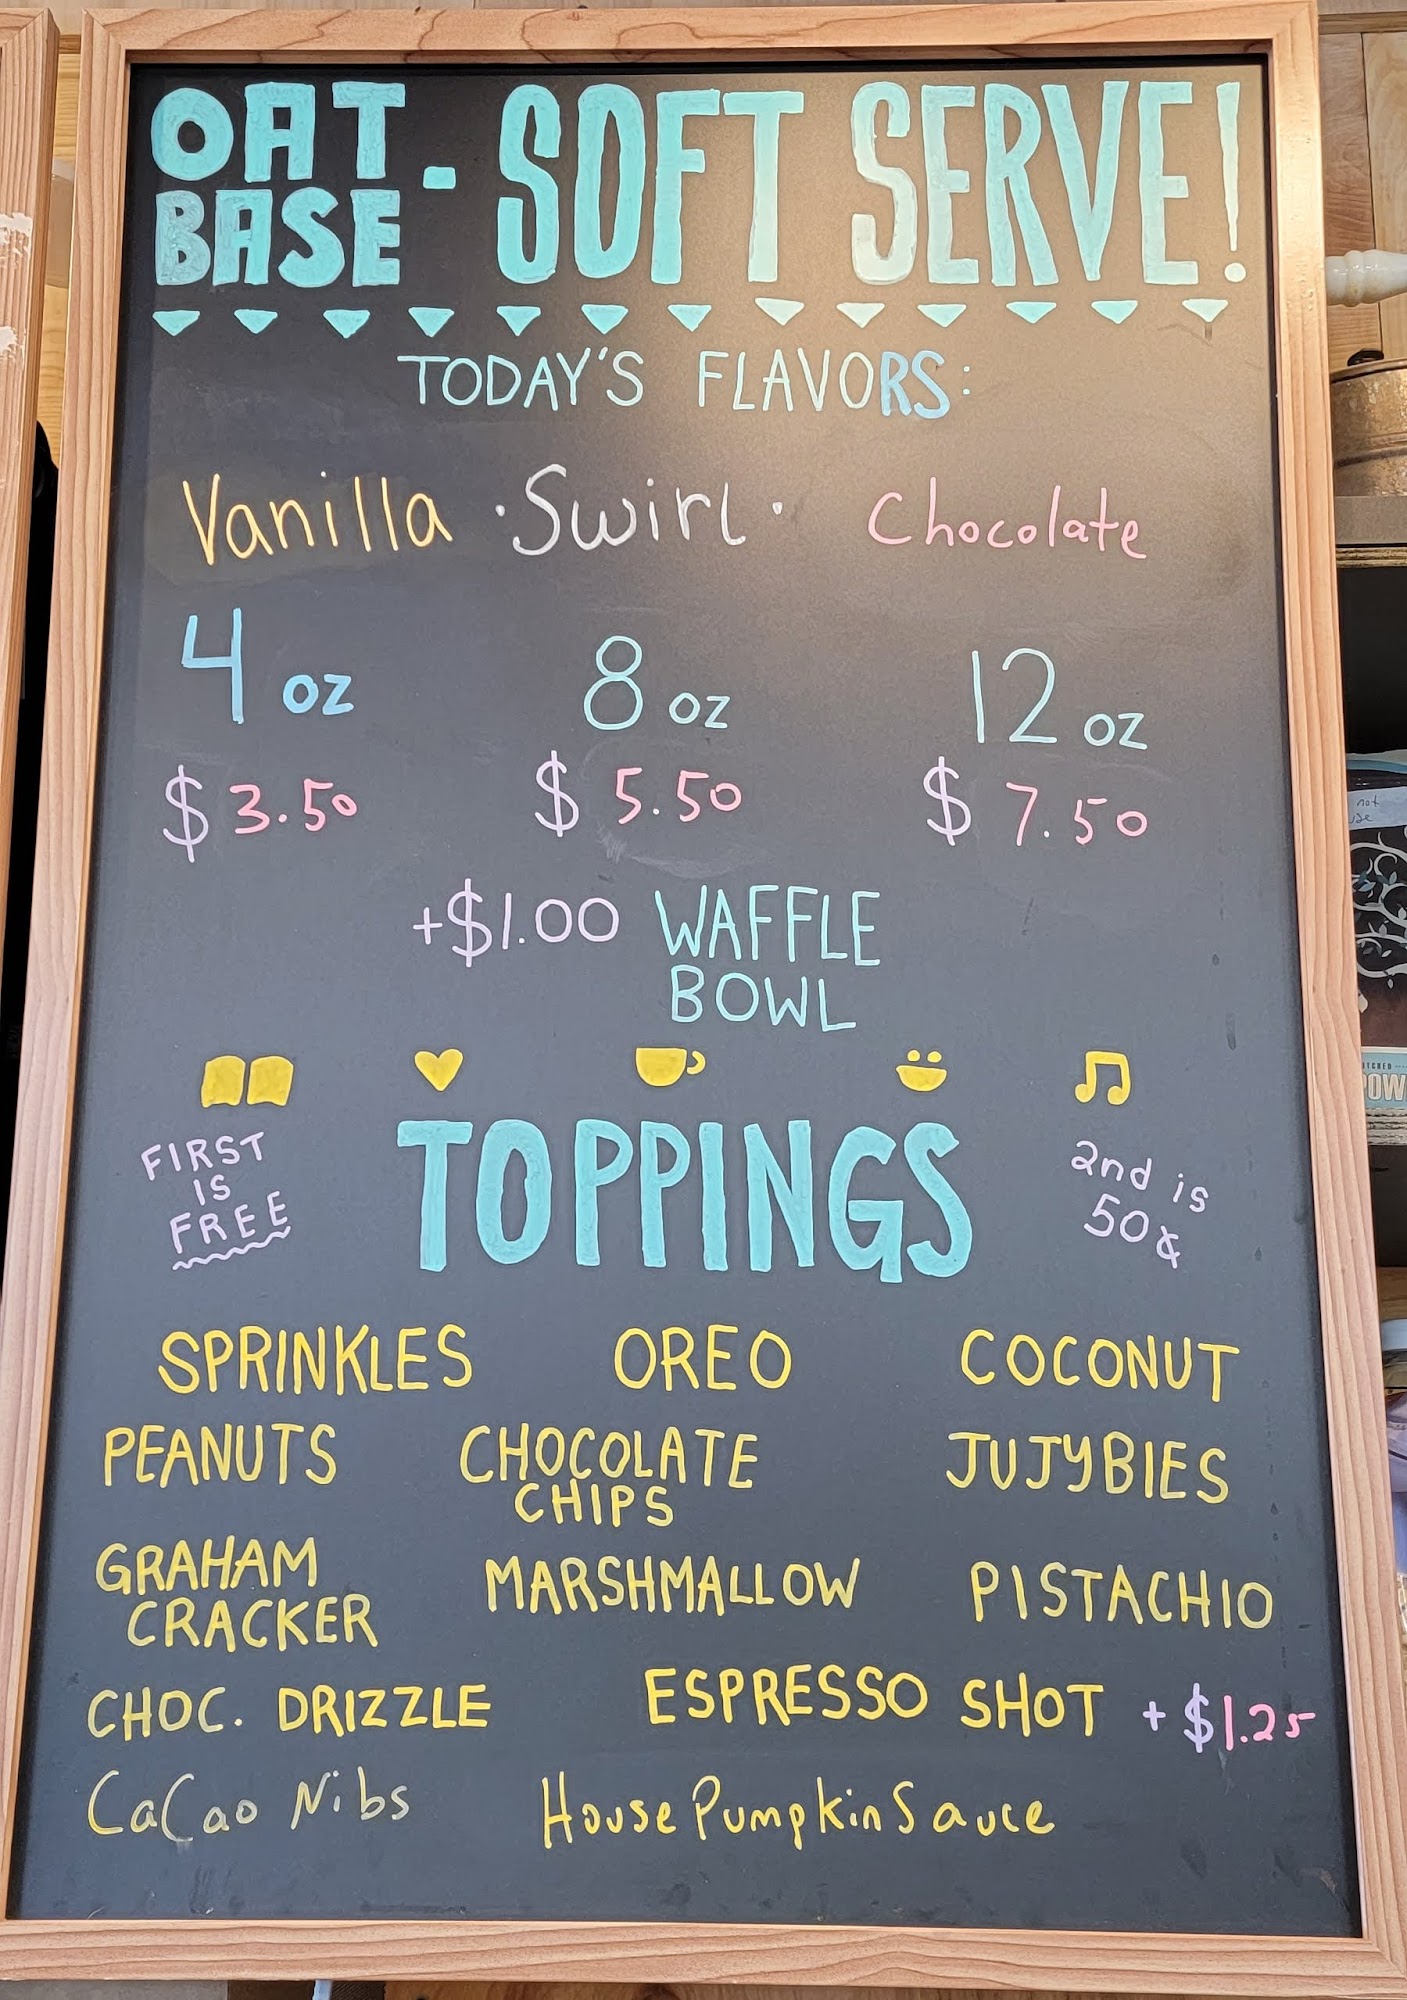 OAT BASE - SOFT SERVE!
TODAY'S FLAVORS:
Vanilla · Swirl · Chocolate
4 oz 8 oz 12 oz
$3.50 $5.50 $7.50
+$1.00 WAFFLE
BOWL
FIRST
IS
FREE
TOPPINGS
2nd is
50¢
SPRINKLES OREO COCONUT
PEANUTS CHOCOLATE CHIPS JUJYBIES
GRAHAM CRACKER MARSHMALLOW PISTACHIO
CHOC. DRIZZLE ESPRESSO SHOT + $1.25
CaCao Nibs House Pumpkin Sauce
not